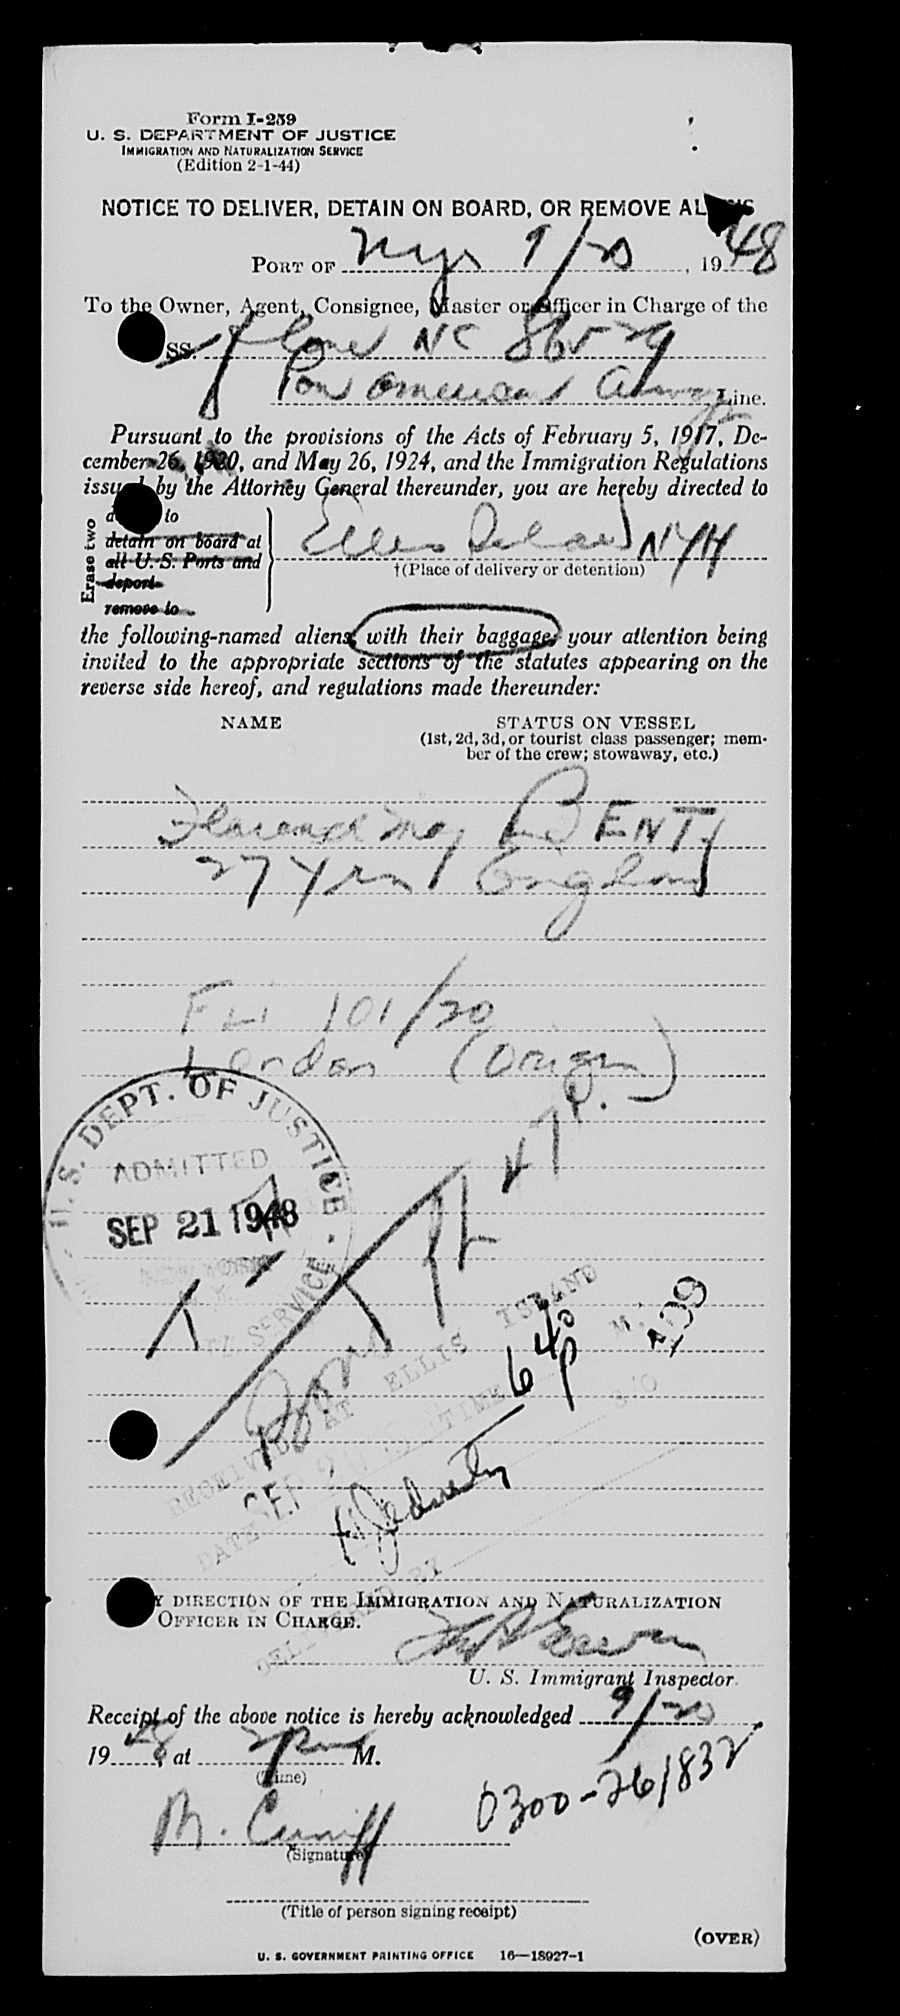 Form I-259
U. S. DEPARTMENT OF JUSTICE
IMMIGRATION AND NATURALIZATION SERVICE
(Edition 2-1-44)
NOTICE TO DELIVER, DETAIN ON BOARD, OR REMOVE
PORT OF 9/20, 1948
To the Owner, Agent, Consignee, Master or Officer in Charge of the
SS. Plane NC
Pan American Line.
Pursuant to the provisions of the Acts of February 5, 1917, De-
cember 26, 1920, and May 26, 1924, and the Immigration Regulations
issued by the Attorney General thereunder, you are hereby directed to
Erase two
to
detain on board at
all U. S. Ports and
deport
remove to
Ellis Island NYH
†(Place of delivery or detention)
the following-named aliens, with their baggage, your attention being
invited to the appropriate sections of the statutes appearing on the
reverse side hereof, and regulations made thereunder:
NAME STATUS ON VESSEL
(1st, 2d, 3d, or tourist class passenger; mem-
ber of the crew; stowaway, etc.)
BENT
27 yrs England
Fli 101/20
London (Origin)
U. S. DEPT. OF JUSTICE
ADMITTED
SEP 21 1948
SERVICE
RECEIVED AT ELLIS ISLAND
DATE SEP TIME 640 P M.
BY
BY DIRECTION OF THE IMMIGRATION AND NATURALIZATION
OFFICER IN CHARGE.
U. S. Immigrant Inspector.
Receipt of the above notice is hereby acknowledged 9/20
1948, at M.
(Time)
0300-261832
M.
(Signature)
(Title of person signing receipt)
(OVER)
U. S. GOVERNMENT PRINTING OFFICE 16—18927-1